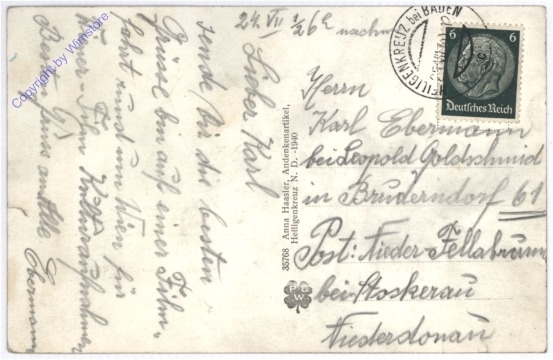 24. VII ½6h nachm
Lieber Karl
sende dir die besten
Grüsse bin auf einer Film-
fahrt rund um Wien für
Wiener-Film Kulturaufnahmen
Gruss an Alle
Ebermann
35768 Anna Haasler, Andenkenartikel,
Heiligenkreuz N. D. -1940
P D
W
HEILIGENKREUZ bei BADEN
6 6
Deutsches Reich
Herrn
Karl Ebermann
bei Leopold Goldschmid
in Bruderndorf 61
Post: Nieder-Fellabrunn
bei Stockerau
Niederdonau
Copyright by Winstore